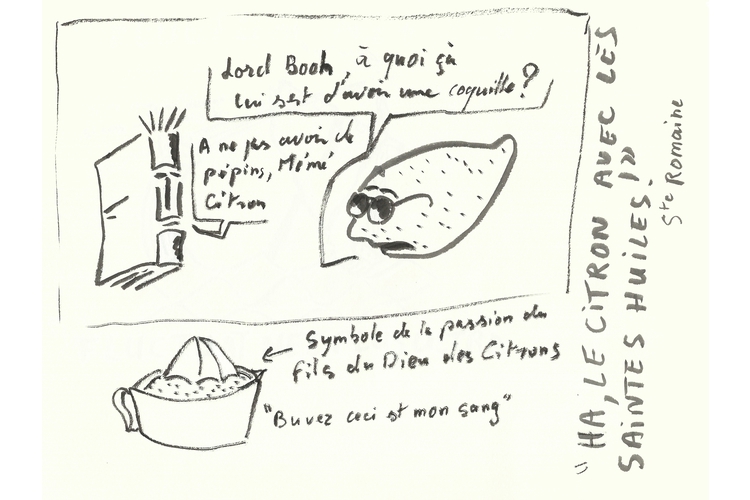 Lord Book, à quoi çà
lui sert d'avoir une coquille?
A ne pas avoir de
pépins, Mémé
Citron
Symbole de la passion du
fils du Dieu des Citrons
"Buvez ceci est mon sang"
"HA, LE CITRON AVEC LES
SAINTES HUILES!"
Ste Romaine